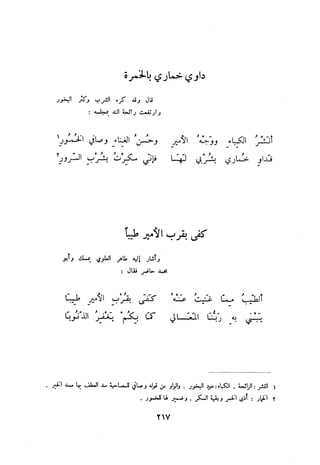 داوي خماري بالخمرة
قال وقد كره الشرب وكثر البخور
وارتفعت رائحة الند بمجلسه :
أنَشْرُ الكِباءِ وَوَجْهُ الأميرِ وَحُسْنُ الغِناءِ وصافي الخُمُورِ١
فَداوِ خُماري بشُرْبي لَهَا فإنّي سَكِرْتُ بشُرْبِ السّرُورِ٢
كفى بقرب الأمير طيباً
وأشار إليه طاهر العلوي بمسك وأبو
محمد حاضر فقال :
ألطّيبُ مِمّا غَنيتُ عَنْهُ كَفَى بقُرْبِ الأميرِ طِيبَا
يَبْني بهِ رَبُّنَا المَعَالي كَمَا بِكُمْ يَغْفِرُ الذّنُوبَا
١ النشر : الرائحة . الكباء : عود البخور . والواو من قوله وصافي للمصاحبة سد العطف بها مسد الخبر .
٢ الخمار : أذى الخمر وبقية السكر . وضمير لها للخمور .
٢١٧